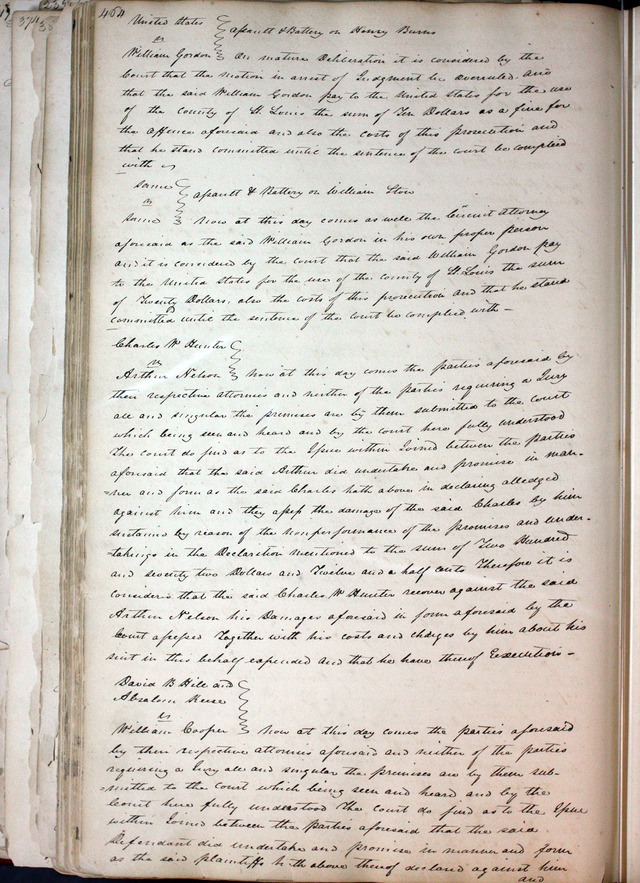 464
United States
vs
assault & Battery on Henry Burns
William Gordon On mature Deliberation it is considered by the
Court that the motion in arrest of Judgment be overruled and
that the said William Gordon pay to the United States for the use
of the County of St. Louis the sum of Ten Dollars as a fine for
the offence aforesaid and also the costs of this prosecution and
that he stand committed until the sentence of the court be complied
with
Same
vs
assault & Battery on William Stow
Same Now at this day comes as well the Circuit Attorney
aforesaid as the said William Gordon in his own proper person
and it is considered by the court that the said William Gordon pay
to the United States for the use of the County of St. Louis the sum
of Twenty Dollars, also the costs of this prosecution and that he stand
committed until the sentence of the court be complied with -
Charles W Hunter
vs
Arthur Nelson Now at this day comes the parties aforesaid by
their respective attornies and neither of the parties requiring a Jury
all and singular the premises are by them submitted to the court
which being seen and heard and by the court here fully understood
The court do find as to the Issue within Joined between the parties
aforesaid that the said Arthur did undertake and promise in man-
=ner and form as the said Charles hath above in declaring alledged
against him and they assess the damages of the said Charles by him
sustained by reason of the nonperformance of the promises and under-
=takings in the Declaration mentioned to the sum of Two Hundred
and seventy two Dollars and Twelve and a half cents Therefore it is
considered that the said Charles W Hunter recover against the said
Arthur Nelson his Damages aforesaid in form aforesaid by the
Court assessed Together with his costs and charges by him about his
suit in this behalf expended and that he have thereof Execution -
David B Hill and
Absalom
vs
William Cooper Now at this day comes the parties aforesaid
by their respective attornies aforesaid and neither of the parties
requiring a Jury all and singular the premises are by them sub-
-mitted to the court which being seen and heard and by the
Court here fully understood The Court do find as to the Issue
within Joined between the Parties aforesaid that the said
Defendant did undertake and promise in manner and form
as the said plaintiffs hath above thereof declared against him
and